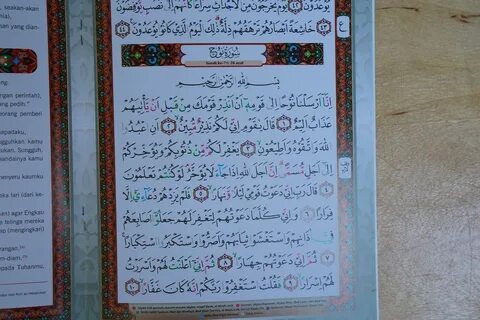 seakan-akan
nia),
yang dian-
perintah),
pedih."
pemberi
apadaku,
kamu
Sungguh,
andainya kamu
enyeru kaumku
ka lari (dari ke-
agar Engkau
e telinga mereka
(mengingkari)
pada Tuhanmu,
يُوعَدُونَ ٤٢ يَوْمَ يَخْرُجُونَ مِنَ الْأَجْدَاثِ سِرَاعًا كَأَنَّهُمْ إِلَىٰ نُصُبٍ يُوفِضُونَ
٤٣ خَاشِعَةً أَبْصَارُهُمْ تَرْهَقُهُمْ ذِلَّةٌ ذَٰلِكَ الْيَوْمُ الَّذِي كَانُوا يُوعَدُونَ ٤٤
ع
سُورَةُ نُوحٍ
Surah ke-71: 28 ayat
بِسْمِ اللَّهِ الرَّحْمَٰنِ الرَّحِيمِ
إِنَّا أَرْسَلْنَا نُوحًا إِلَىٰ قَوْمِهِ أَنْ أَنْذِرْ قَوْمَكَ مِنْ قَبْلِ أَنْ يَأْتِيَهُمْ
عَذَابٌ أَلِيمٌ ١ قَالَ يَا قَوْمِ إِنِّي لَكُمْ نَذِيرٌ مُبِينٌ ٢ أَنِ اعْبُدُوا
اللَّهَ وَاتَّقُوهُ وَأَطِيعُونِ ٣ يَغْفِرْ لَكُمْ مِنْ ذُنُوبِكُمْ وَيُؤَخِّرْكُمْ
إِلَىٰ أَجَلٍ مُسَمًّى إِنَّ أَجَلَ اللَّهِ إِذَا جَاءَ لَا يُؤَخَّرُ لَوْ كُنْتُمْ تَعْلَمُونَ
٤ قَالَ رَبِّ إِنِّي دَعَوْتُ قَوْمِي لَيْلًا وَنَهَارًا ٥ فَلَمْ يَزِدْهُمْ دُعَائِي إِلَّا
فِرَارًا ٦ وَإِنِّي كُلَّمَا دَعَوْتُهُمْ لِتَغْفِرَ لَهُمْ جَعَلُوا أَصَابِعَهُمْ
فِي آذَانِهِمْ وَاسْتَغْشَوْا ثِيَابَهُمْ وَأَصَرُّوا وَاسْتَكْبَرُوا اسْتِكْبَارًا
٧ ثُمَّ إِنِّي دَعَوْتُهُمْ جِهَارًا ٨ ثُمَّ إِنِّي أَعْلَنْتُ لَهُمْ وَأَسْرَرْتُ
لَهُمْ إِسْرَارًا ٩ فَقُلْتُ اسْتَغْفِرُوا رَبَّكُمْ إِنَّهُ كَانَ غَفَّارًا ١٠